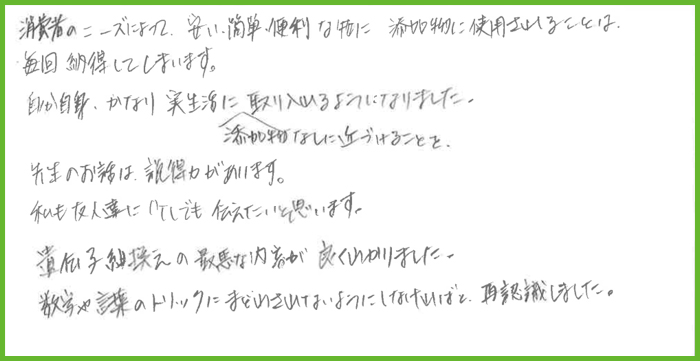 消費者のニーズによって、安い、簡単、便利な物に 添加物に使用されることは、
毎回 納得してしまいます。
自分自身、かなり 実生活に 取り入れるようになりました。
添加物なしに近づけることを、
先生のお話は、説得力があります。
私も友人達に少しでも 伝えたいと思います。
遺伝子組換えの最悪な内容が 良くわかりました。
数字や言葉のトリックに まどわされないようにしなければと、再認識しました。